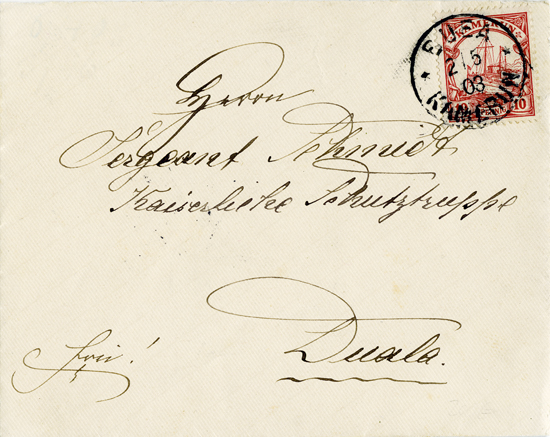 KAMERUN
10
2/5
03
KAMERUN
Herrn
Sergeant Schmidt
Kaiserliche Schutztruppe
Duala.
frei!